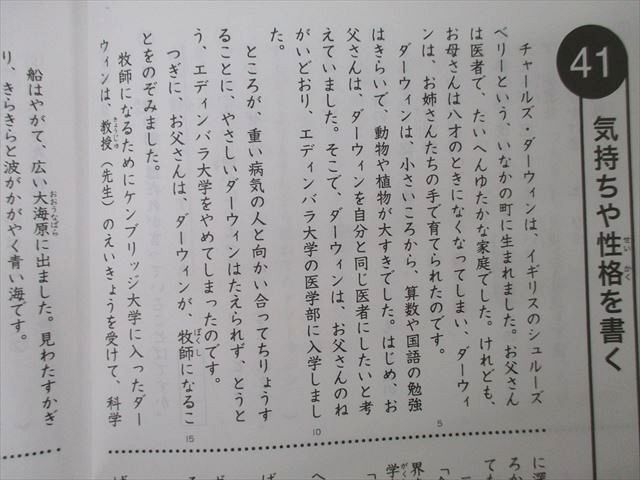 41
気持ちや性格を書く
せい かく
チャールズ・ダーウィンは、イギリスのシュルーズ
ベリーという、いなかの町に生まれました。お父さん
は医者で、たいへんゆたかな家庭でした。けれども、
お母さんは八才のときになくなってしまい、ダーウィ
ンは、お姉さんたちの手で育てられたのです。
5
ダーウィンは、小さいころから、算数や国語の勉強
はきらいで、動物や植物が大すきでした。はじめ、お
父さんは、ダーウィンを自分と同じ医者にしたいと考
えていました。そこで、ダーウィンは、お父さんのね
がいどおり、エディンバラ大学の医学部に入学しまし
10
た。
ところが、重い病気の人と向かい合ってちりょうす
ることに、やさしいダーウィンはたえられず、とうと
う、エディンバラ大学をやめてしまったのです。
つぎに、お父さんは、ダーウィンが、牧師になるこ
ぼくし
15
とをのぞみました。
牧師になるためにケンブリッジ大学に入ったダー
ウィンは、教授(先生)のえいきょうを受けて、科学
きょうじゅ
船はやがて、広い大海原に出ました。見わたすかぎ
おおうなばら
り、きらきらと波がかがやく青い海です。